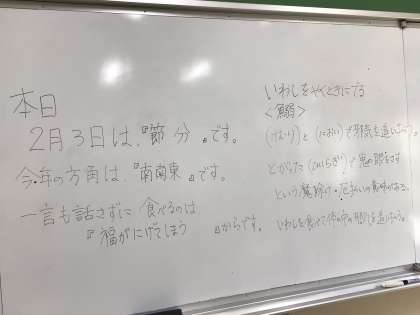 本日
2月3日は、『節分』です。
今年の方角は、『南南東』です。
一言も話さずに 食べるのは
『福がにげてしまう』からです。
いわしをやくときにでる
<鰯>
(けむり)と(におい)で邪気を追い
とがった(ひいらぎ)で鬼の眼をさす
という魔除け・厄払いの意味がある。
いわしを食べて体の中の